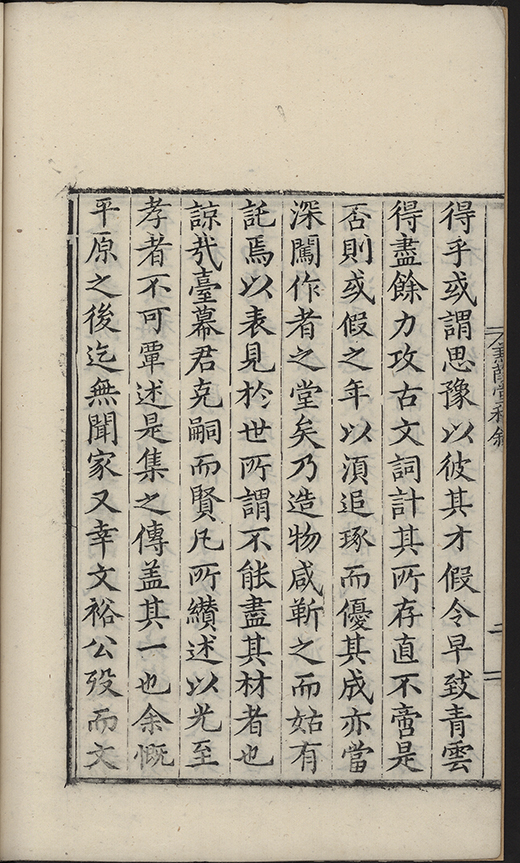 得乎或謂思豫以彼其才假令早致青雲
得盡餘力攻古文詞計其所存直不啻是
否則或假之年以湏追琢而優其成亦當
深闖作者之堂矣乃造物咸靳之而姑有
託焉以表見於世所謂不能盡其材者也
諒㢤臺幕君克嗣而賢凡所纘述以光至
孝者不可覃述是集之傳盖其一也余慨
平原之後迄無聞家又幸文裕公歿而文